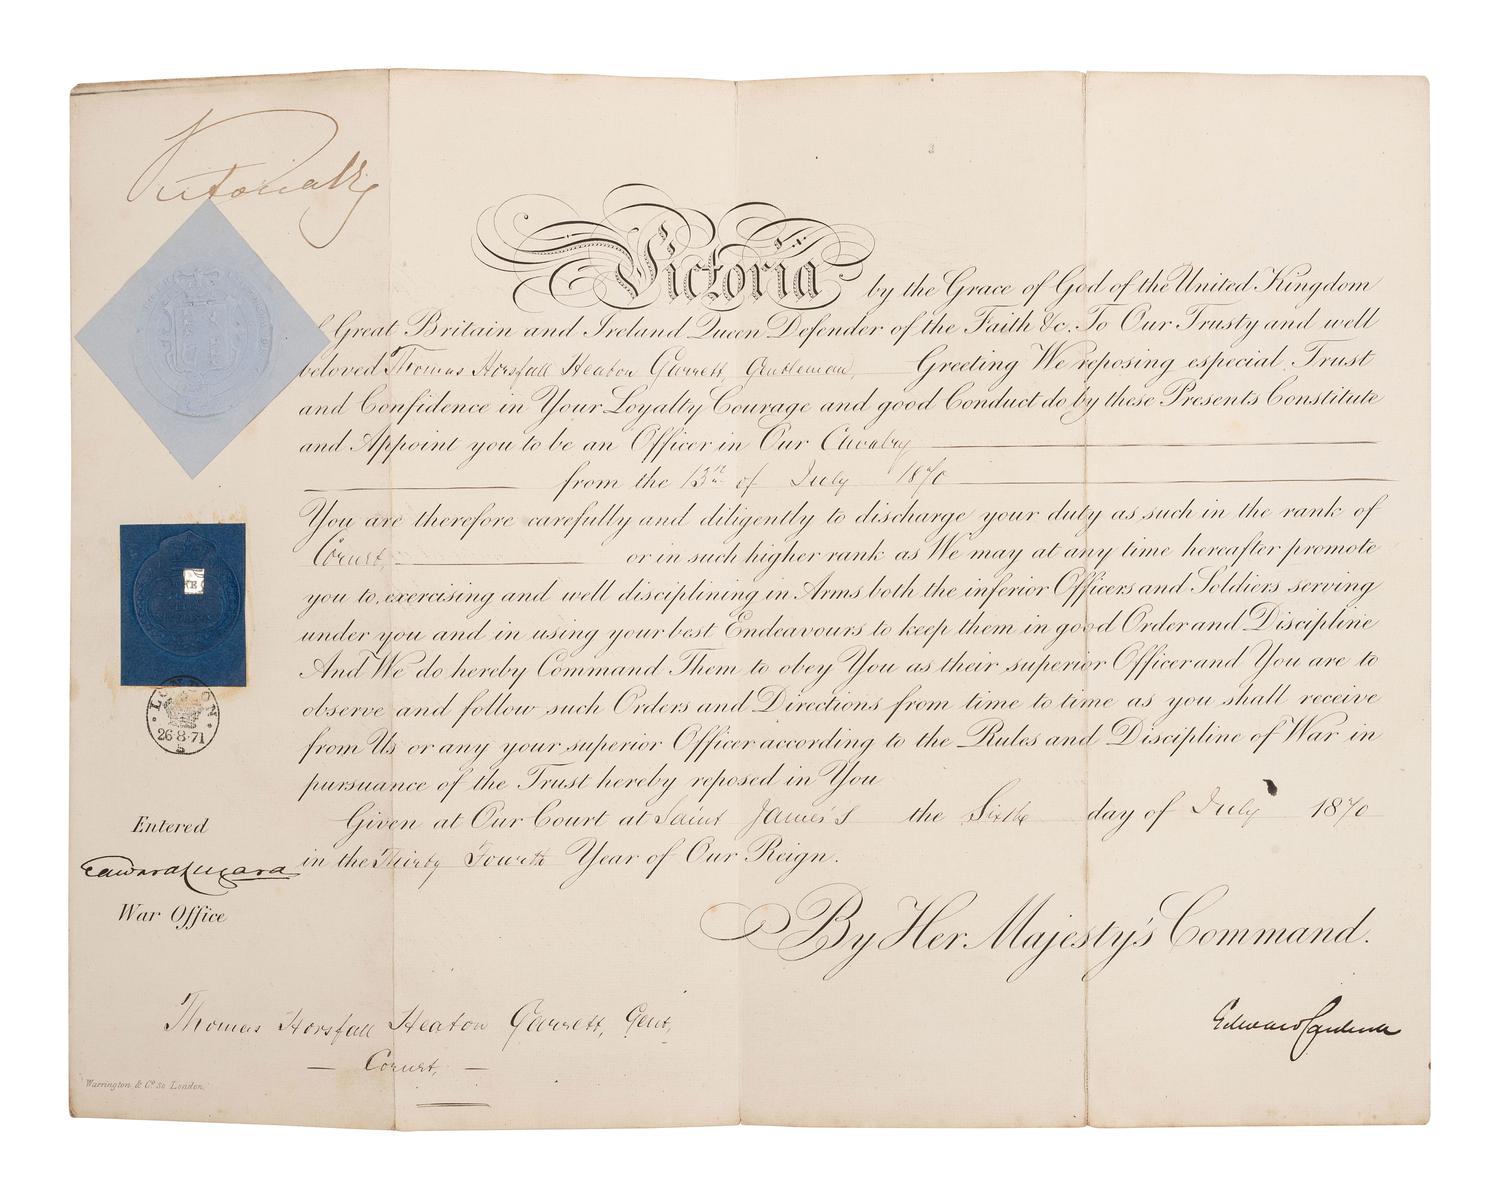 Victoria R
Victoria by the Grace of God of the United Kingdom
of Great Britain and Ireland Queen Defender of the Faith &c. To Our Trusty and well
beloved Thomas Horsfall Heaton Garrett, Gentleman, Greeting We reposing especial Trust
and Confidence in Your Loyalty Courage and good Conduct do by these Presents Constitute
and Appoint you to be an Officer in Our Cavalry
from the 13th of July 1870
You are therefore carefully and diligently to discharge your duty as such in the rank of
Cornet, or in such higher rank as We may at any time hereafter promote
you to, exercising and well disciplining in Arms both the inferior Officers and Soldiers serving
under you and in using your best Endeavours to keep them in good Order and Discipline
And We do hereby Command Them to obey You as their superior Officer and You are to
observe and follow such Orders and Directions from time to time as you shall receive
from Us or any your superior Officer according to the Rules and Discipline of War in
pursuance of the Trust hereby reposed in You
Given at Our Court at Saint James's the Sixth day of July 1870
in the Thirty Fourth Year of Our Reign.
LONDON
26·8·71
Entered
Edward Lugard
War Office
By Her Majesty's Command.
Edward Cardwell
Thomas Horsfall Heaton Garrett, Gent,
— Cornet, —
Warrington & Co. London.